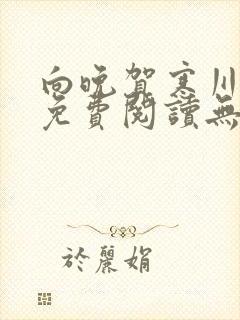 向晚賀寒川
免費閱讀無
於麗娟